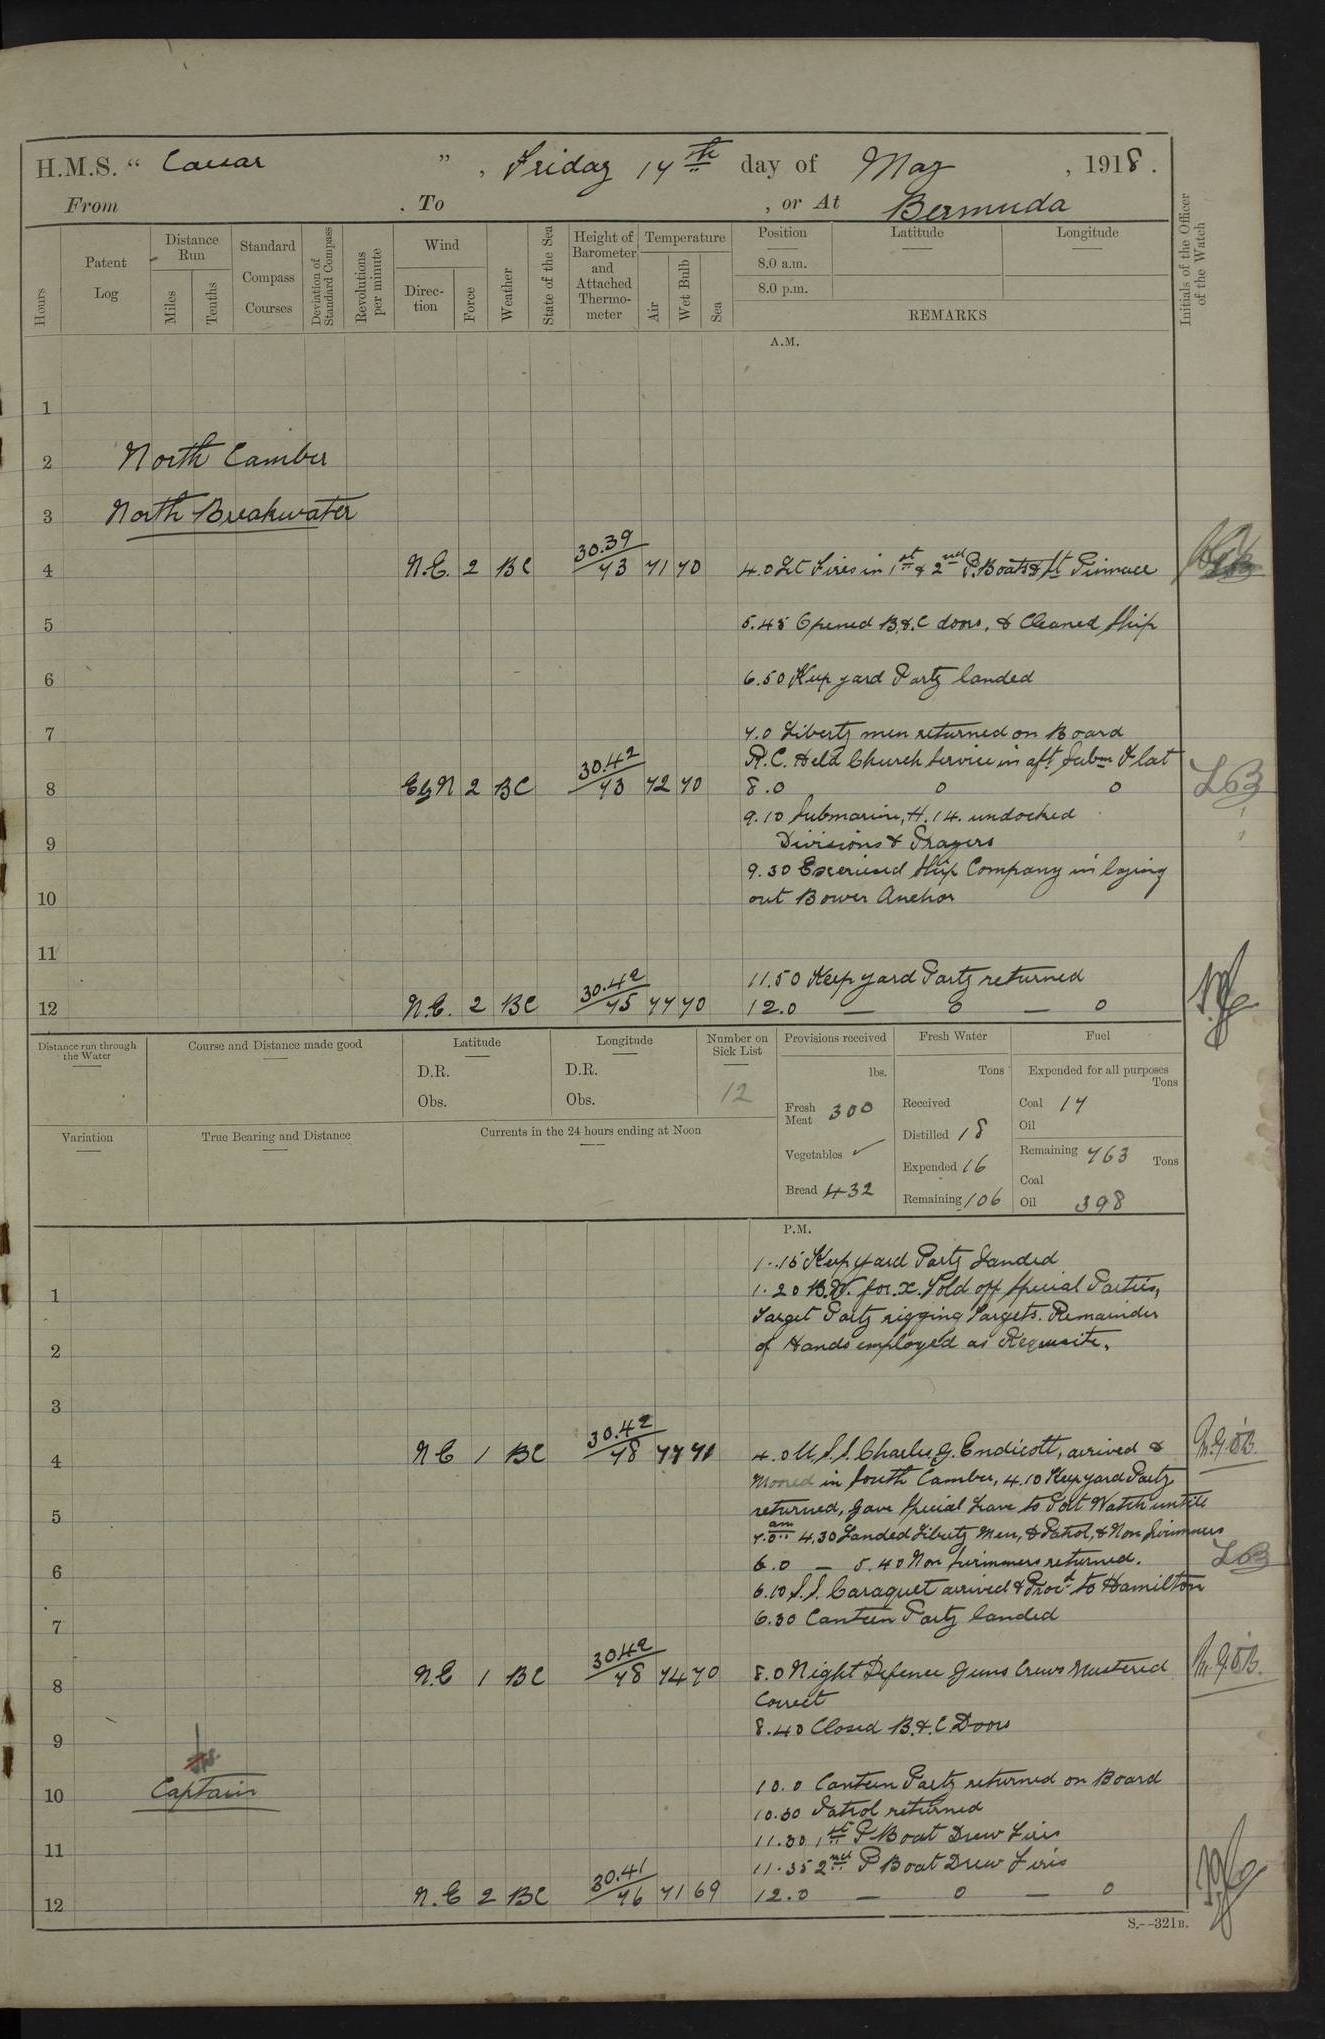 H.M.S. “ Caesar ” , Friday 17th day of May , 1918 .
From . To , or At Bermuda
Hours
Patent Log
Distance Run
Miles
Tenths
Standard Compass Courses
Deviation of Standard Compass
Revolutions per minute
Wind
Direction
Force
Weather
State of the Sea
Height of Barometer and Attached Thermometer
Temperature
Air
Wet Bulb
Sea
Position
8.0 a.m.
8.0 p.m.
Latitude
Longitude
REMARKS
Initials of the Officer of the Watch
A.M.
1
2 North Camber
3 North Breakwater
4 N.E. 2 BC 30.39 73 71 70 4.0 Lt Fires in 1st & 2nd P. Boats & St Pinnace
5 5.45 Opened B.&.C doors, & Cleaned Ship
6 6.50 Keep yard Party landed
7 7.0 Liberty men returned on Board
R.C. Held Church Service in aft Subm Flat
8 EbyN 2 BC 30.42 73 72 70 8.0 o o LB
9.10 Submarine, H.14. undocked
9 Divisions & Prayers
9.30 Exercised Ship Company in laying
10 out Bower Anchor
11
11.50 Keep yard Party returned
12 N.E. 2 BC 30.42 75 77 70 12.0 — o — o
Distance run through the Water
Course and Distance made good
Latitude
D.R.
Obs.
Longitude
D.R.
Obs.
Number on Sick List
12
Provisions received
lbs.
Fresh Meat 300
Vegetables ✓
Bread 432
Fresh Water
Tons
Received
Distilled 18
Expended 16
Remaining 106
Fuel
Expended for all purposes
Tons
Coal 17
Oil
Remaining 763 Tons
Coal
Oil 398
Variation
True Bearing and Distance
Currents in the 24 hours ending at Noon
P.M.
1.15 Keep yard Party Landed
1 1.20 B.W. for.x. Told off Special Parties,
Target Party rigging Targets. Remainder
2 of Hands employed as Requisite.
3
4 N E 1 BC 30.42 78 77 71 4.0 U.S.S. Charles, G. Endicott, arrived &
Moored in South Camber, 4.10 Keep yard Party
5 returned, Gave Special Leave to Port Watch until
7.0 am 4.30 Landed Liberty Men, & Patrol, & Non Swimmers
6 6.0 — 5.40 Non Swimmers returned. LB
6.10 S.S. Caraquet arrived & Procd to Hamilton
7 6.30 Canteen Party landed
8 N.E 1 BC 30.42 78 74 70 8.0 Night Defence Guns Crews Mustered
Correct
9 8.40 Closed B.&.C Doors
10 Captain 10.0 Canteen Party returned on Board
10.30 Patrol returned
11 11.30 1st P Boat Drew Fires
11.35 2nd P Boat Drew Fires
12 N.E 2 BC 30.41 76 71 69 12.0 — o — o
S.--321B.